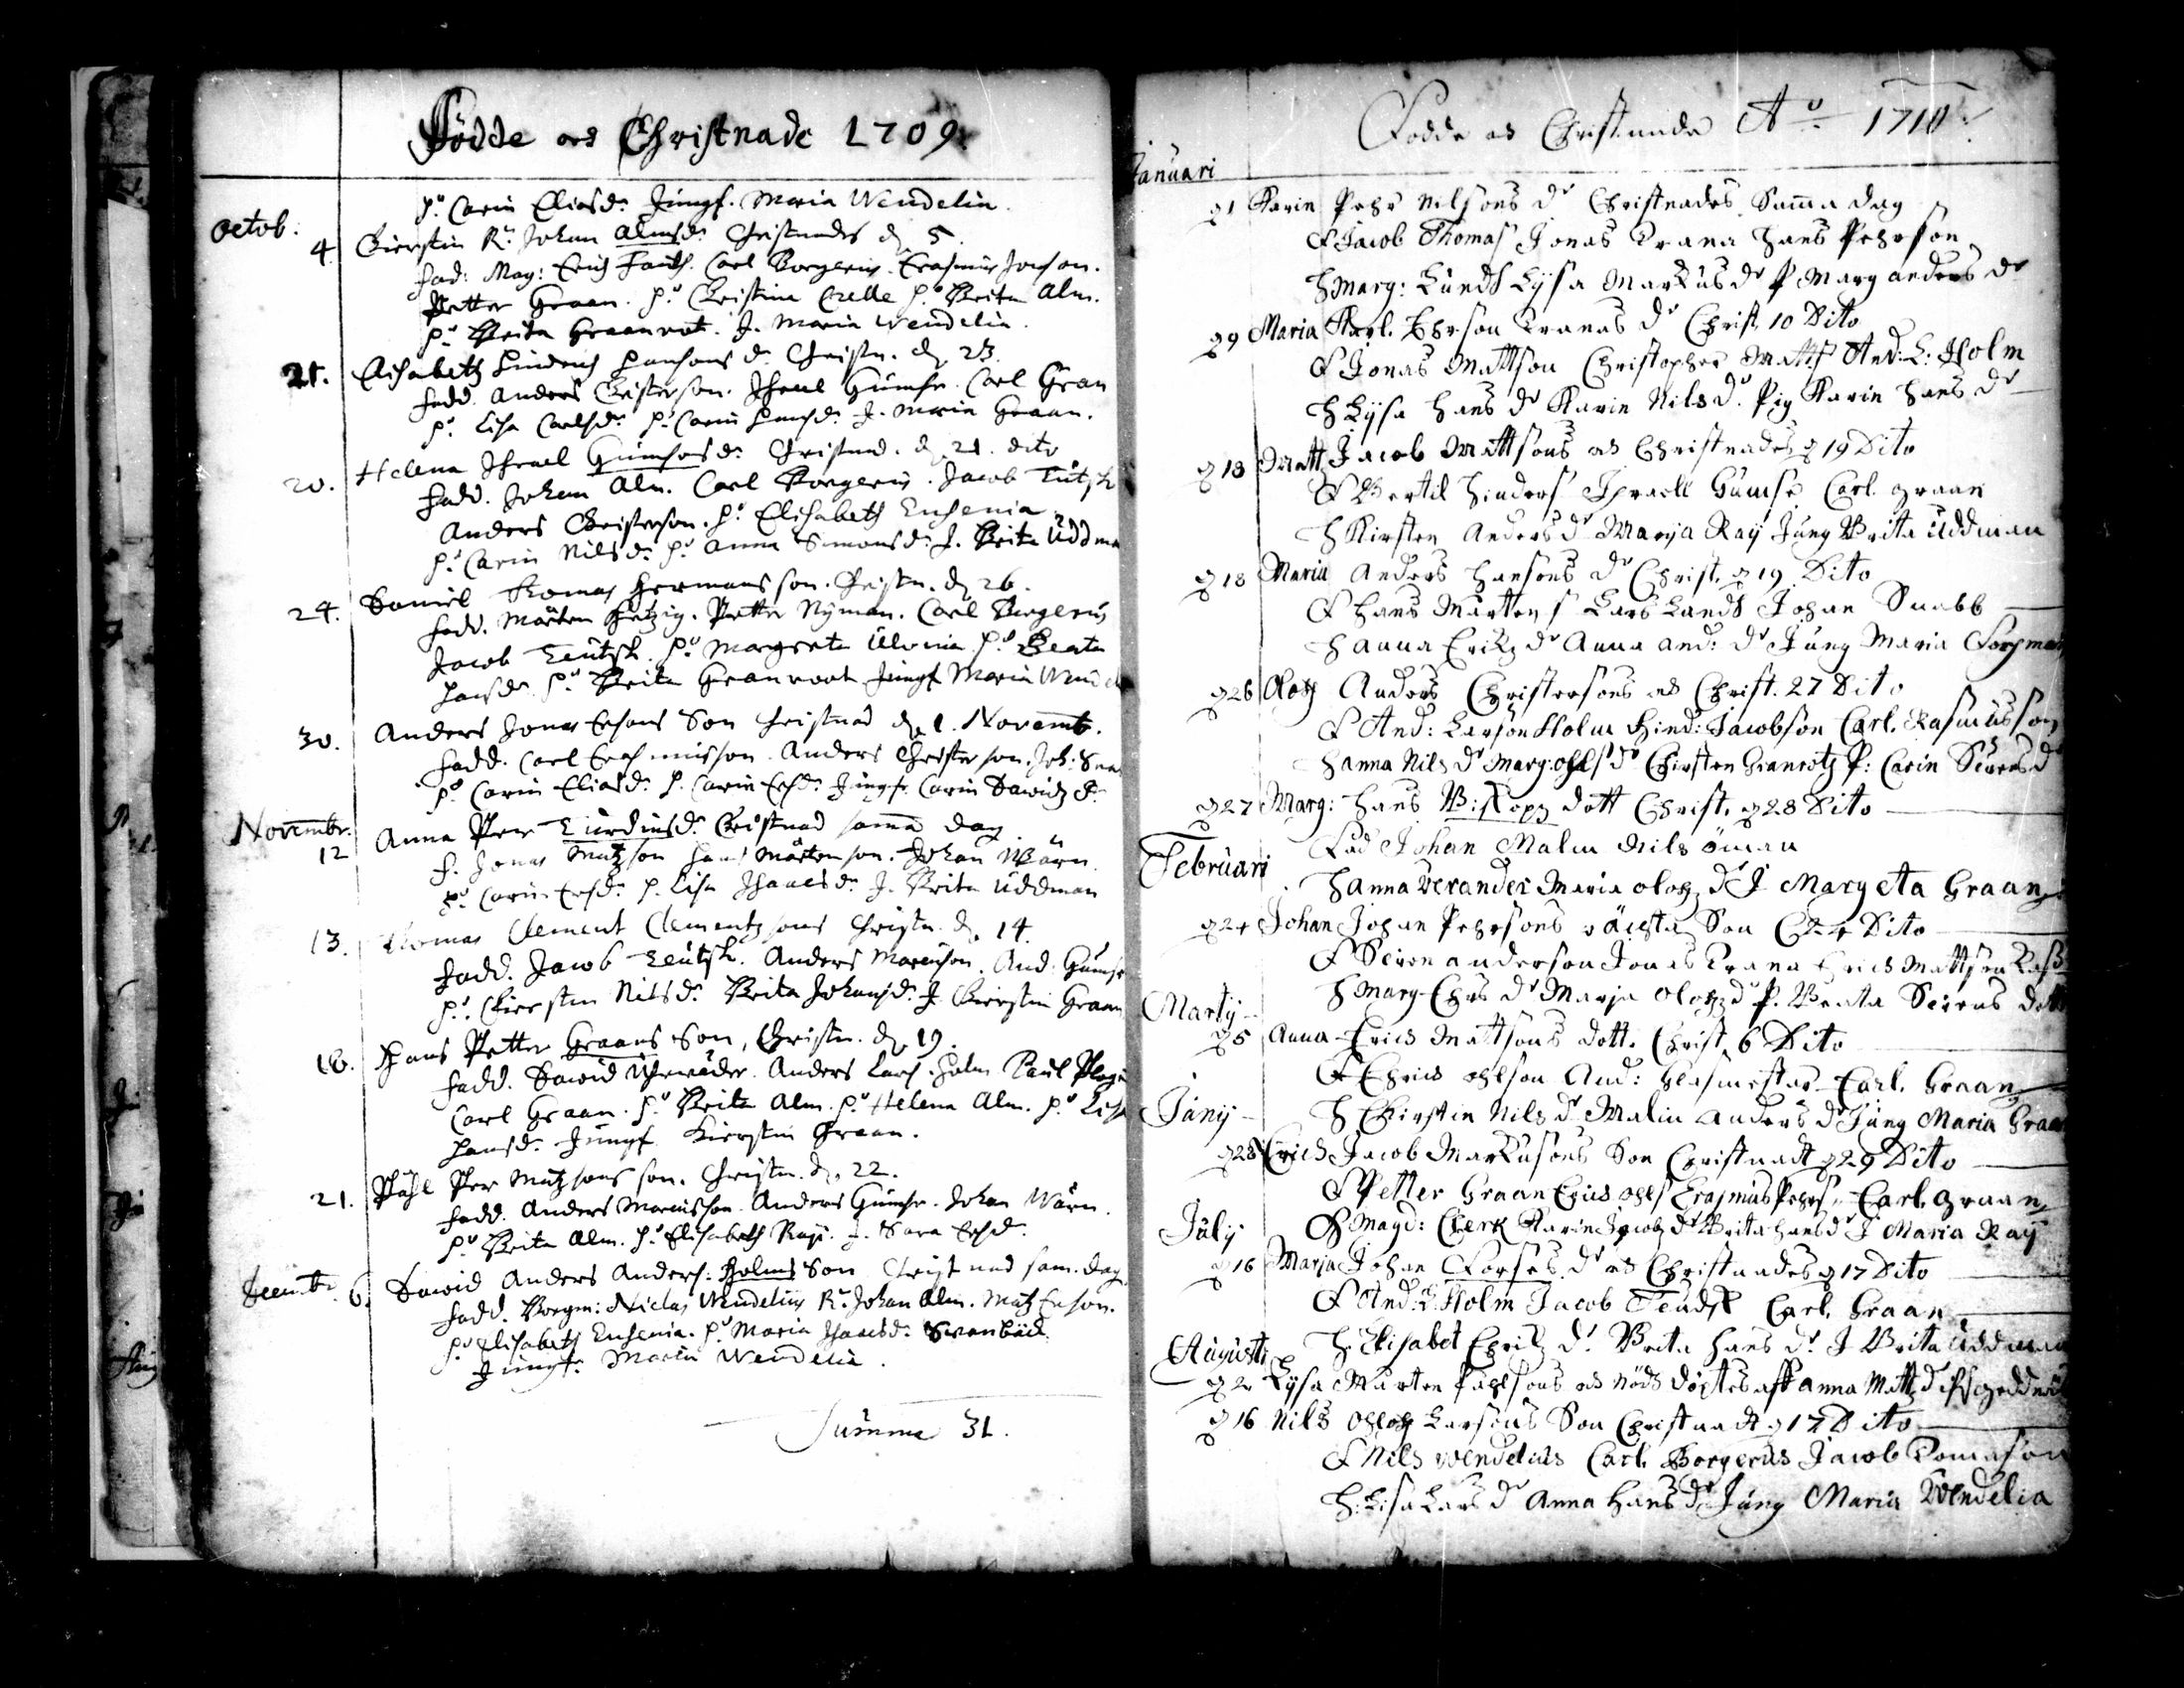 Födde och Christnade 1709.
hu. Carin Eliasd. Jungf. Maria Wendelia.
Octob:
4. Kierstin R. Johan Almsdr. Christnades d. 5.
fad: Mag: Erich Carl Borgerus. Erasmus Jonson.
Petter Graan. hu. Christina hu. Brita Alm.
hu. Brita Graanrot. J. Maria Wendelia.
21. Elisabeth Hindrich Hansons d. Christn. d. 23.
fadd. Anders Christerson. Israel Gumse. Carl Gran
hu. Lisa Carlsd. hu. Carin Hansd. J. Maria Graan.
20. Helena Israel Gumses d. Christnad. d. 21. dito
fadd. Johan Alm. Carl Borgerus. Jacob Teutsch
Anders Christerson. hu. Elisabeth Euchenia
hu. Carin Nilsd. hu. Anna Simonsd. J. Brita Uddma
24. Daniel Thomas Hermansson. Christn. d. 26.
fadd. Mårten Petter Nyman. Carl Borgerus
Jacob Teutsch. hu. Margreta Ulvinia hu. Beata
Hansd. hu. Brita Graanroot Jungf Maria Wendel
30. Anders Jonas Ersons Son Christnad d. 1. Novemb.
fadd. Carl Erasmusson. Anders Christerson. Joh: Sna
hu. Carin Eliasd. h. Carin Ersd. Jungf. Carin Davidz d.
Novembr.
12 Anna Per dr. Christnad sama dag
f. Jonas Matzson Hans Mårtenson. Johan Wärn
hu. Carin Ersd. h. Lisa Isaacsd. J. Brita Uddman
13. Thomas Clement Clementzsons Christn. d. 14.
fadd. Jacob Teutsch. Anders Marcusson. And: Gumse
hu. Kierstin Nilsd. Brita Johansd. J. Kierstin Graan
18. Hans Petter Graans Son, Christn. d. 19.
fadd. David Anders Lars. Holm Paul
Carl Graan. hu. Brita Alm. hu. Helena Alm. hu. Lisa
Hansd. Jungf Kierstin Graan.
21. Påhl Per Matzsons son. Christn. d. 22.
fadd. Anders Marcusson Anders Gumse. Johan Wärn.
hu. Brita Alm. hu. Elisabeth Raji. J. Sara Ersd.
Decembr. 6. David Anders Anders: Holms Son Christnad sam. dag.
fadd. Borgm: Niclas Wendelius R. Johan Alm. Matz Erson.
hu. Elisabeth Euchenia. hu. Maria Isaacsd. Swanbäck
Jungf. Maria Wendelia.
Summa 31.
Födde och Christnade Ao 1710
Januari
d 1 Karin Pehr Nilsons dr Christnades Sama dag
F Jacob Thomas Jonas Trana Hans Pehrson
H Marg: Lunds Lysa Markus dr P Marg Anders dr
d 9 Maria Karl Ehrson Tranas dr Christ 10 Dito
F Jonas Mattson Christopher Matts And: L: Holm
H Lysa Hans dr Karin Nils dr. Pig Karin Hans dr
d 18 Matt Jacob Mattsons och Christnades d 19 Dito
F Bertil Hinders Israell Gumse Carl Graan
H Kirsten Anders dr Marja Raij Jung Brita Uddman
d 18 Maria Anders Hansons dr Christ. d 19 Dito
F Hans Mårtens Lars Lands Johan Snabb
H Anna Erikz dr Anna And: dr Jung Maria Forsman
d 26 Olof Anders Christersons och Christ. 27 Dito
F And: Larson Holm Hind: Jacobson Carl. Rasmusson
H Anna Nils dr Marg: Ohls dr Chirsten Granrotz P: Carin Sirens d
d 27 Marg: Hans Biskops dott Christ. d 28 Dito
Fad Johan Malm Nils Öman
Februari
H Anna Verander Maria Olofz dr J Margeta Graan
d 24 Johan Johan Pehrsons Son C 24 Dito
F Siron Anderson Jonas Trana Erich Mattson
H Marg Ehrs dr Marja Olofz dr P. Beata Sirens dott
Martij
d 5 Anna Erics Mattsons dott. Christ 6 Dito
F Ehrics Ohlson And: Glasmestar Carl. Graan
Junij
H Chirstin Nils dr Malin Anders dr Jung Maria Graan
d 28 Erich Jacob Markusons Son Christnadt d 29 Dito
F Petter Graan Erics Ohls Erasmus Pehrs. Carl. Graan
July
H Magd: Clerk Karin Jacobz dr Brita Hans dr J Maria Raij
d 16 Marja Johan Forses dr och Christnades d 17 Dito
F And: L: Holm Jacob Teudsk Carl. Graan
Augusti
H. Elisabet Chritz dr. Brita Hans dr. J Brita Uddman
d 2 Lysa Mårten Påhlsons och nöds döptes aff Anna Matts dr
d 16 Nils Ohlof Larsons Son Christnadt d 17 Dito
F Nils Wendelius Carl. Borgerus Jacob Tomason
H: Lisa Lars dr Anna Hans dr Jung Maria Wendelia